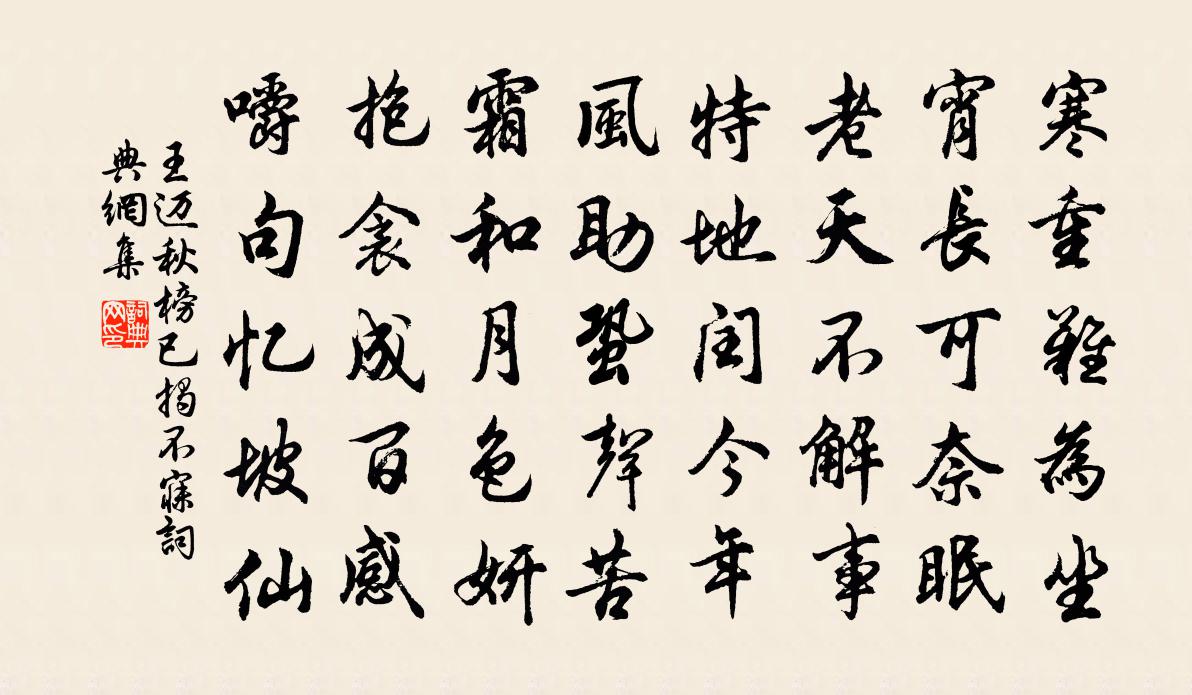 寒重難為坐
宵長可奈眠
老天不解事
特地闰今年
風助蛩聲苦
霜和月色妍
抱衾成百感
嚼句忆坡仙
王迈秋榜已揭不寐詞
典網集
詞典
网印